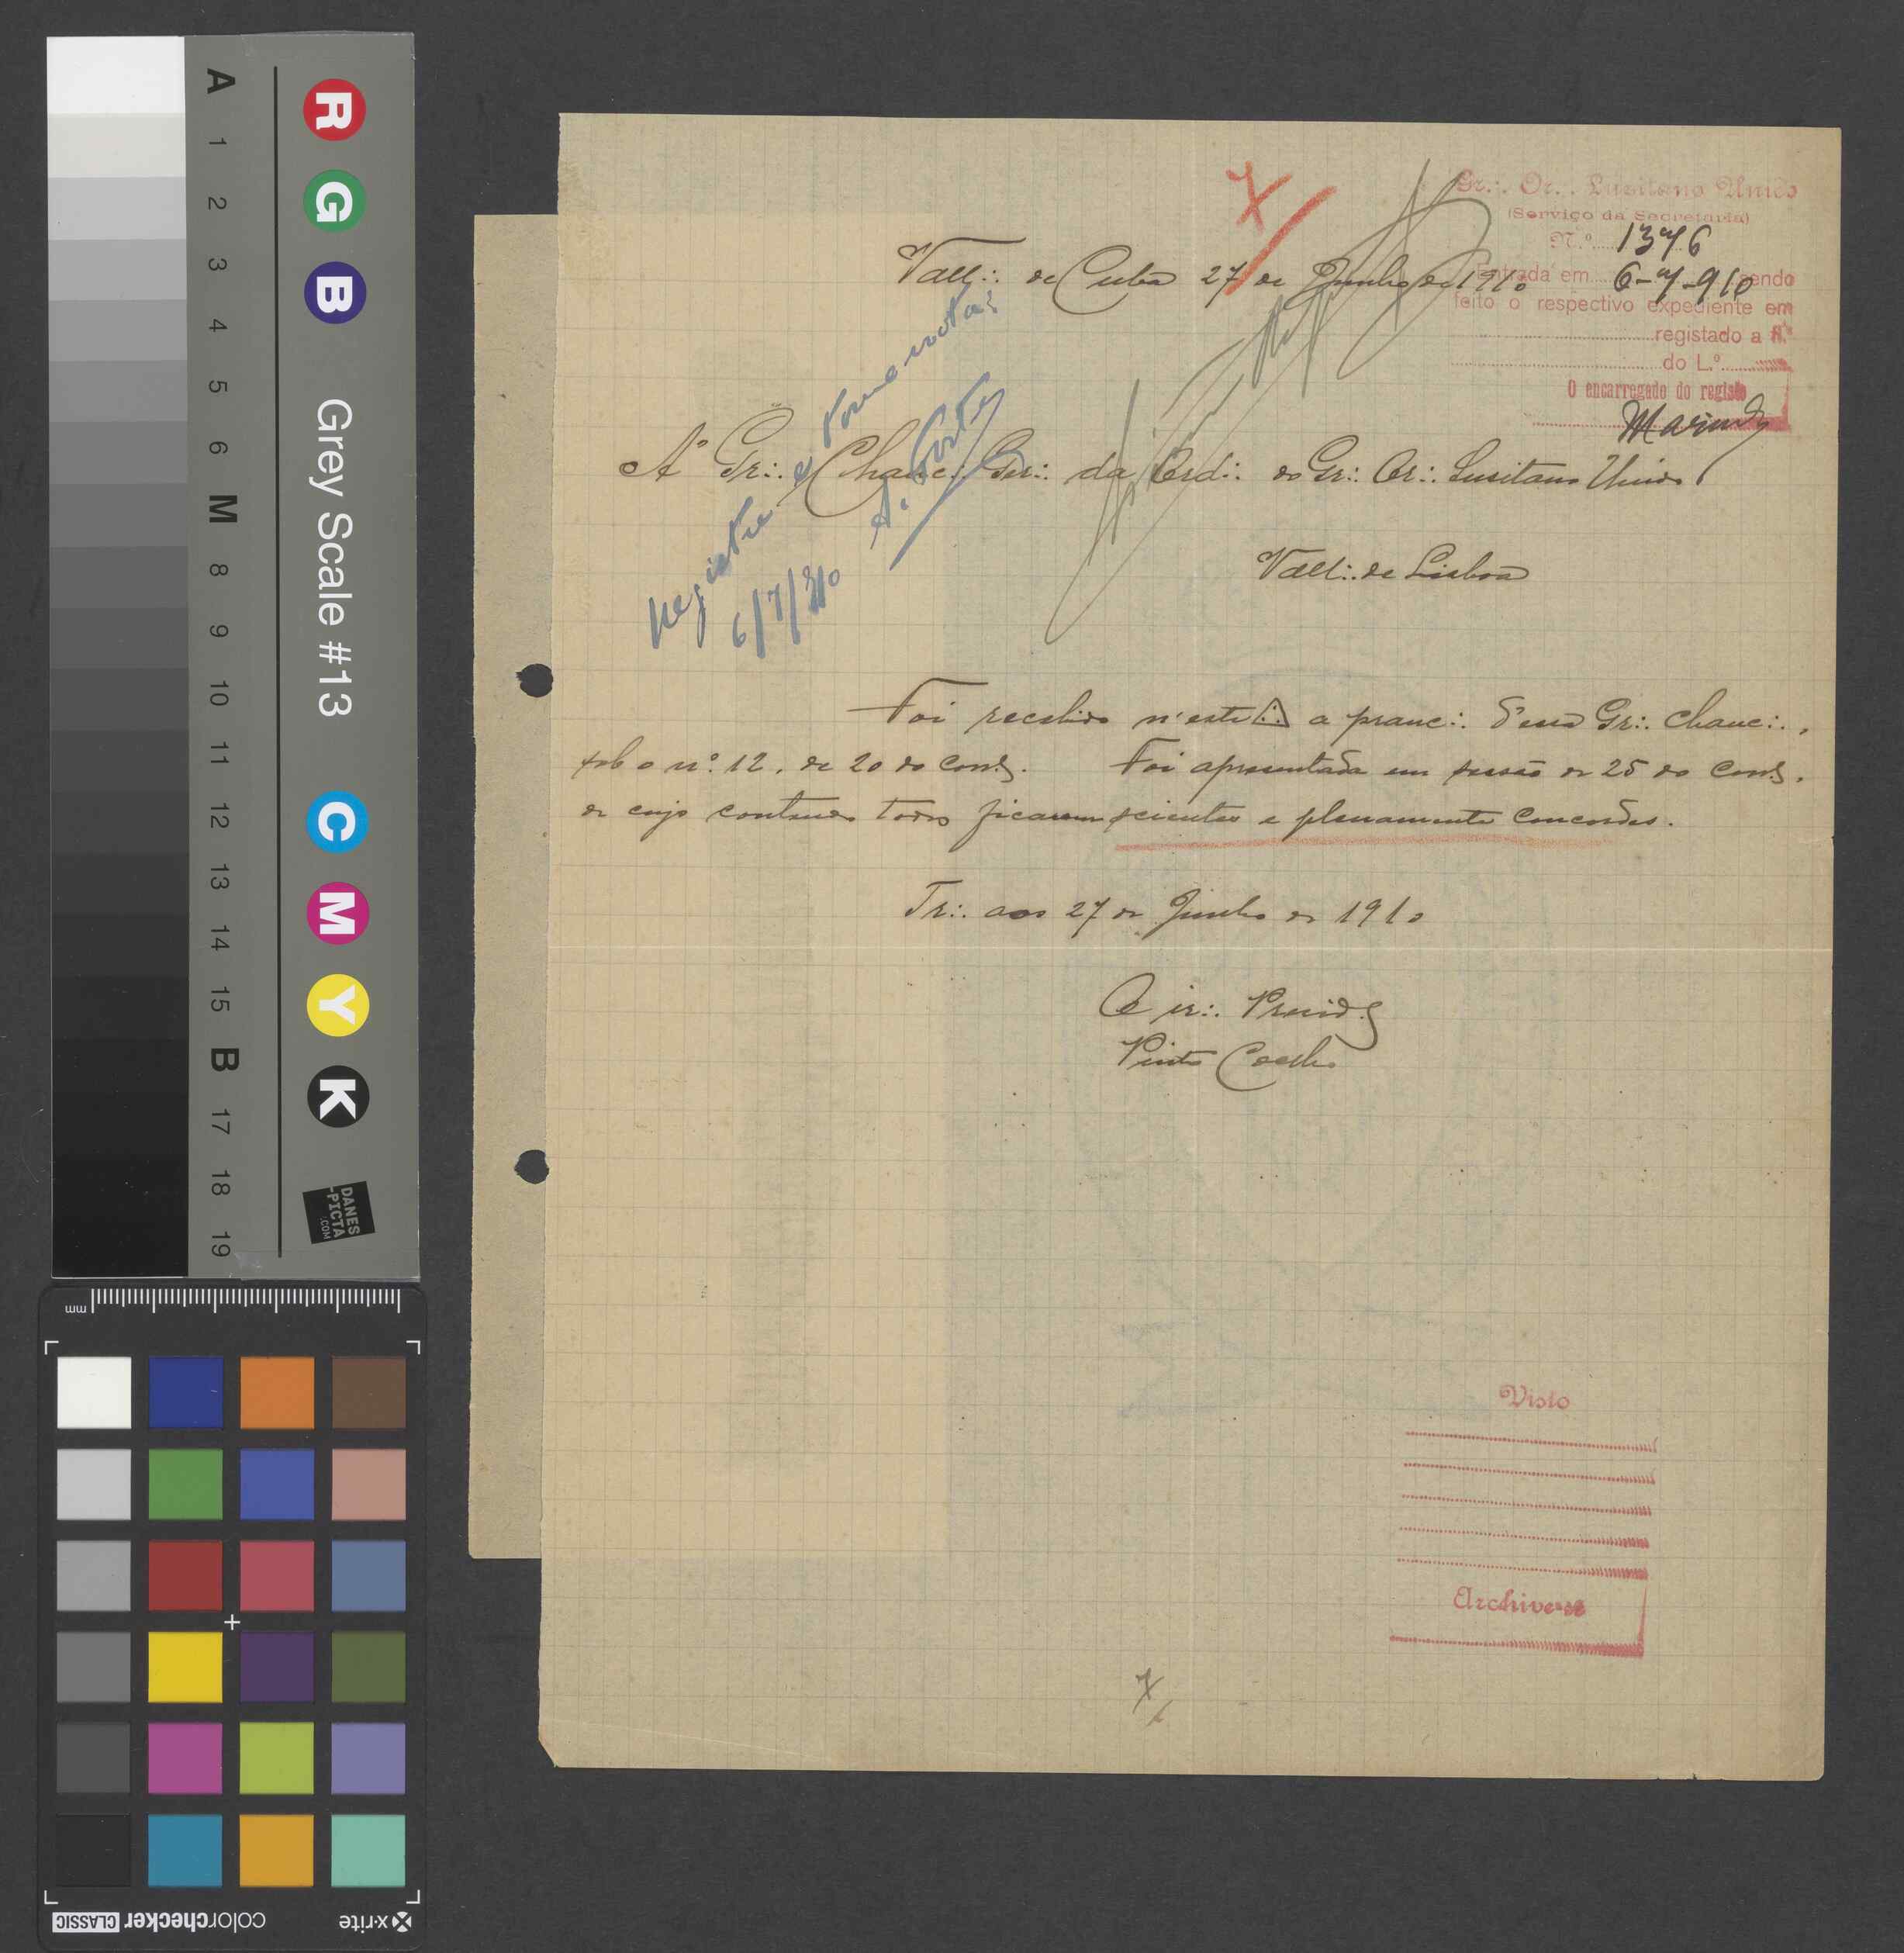 Gr∴ Or∴ Lusitano Unido
(Serviço da Secretaria)
N.º 1376
Entrada em 6-7-910 sendo
feito o respectivo expediente em
registado a fl.
do L.º
O encarregado do registo
7
Vall∴ de Cuba 27 de Junho de 1910
Registe e tome nota
6/7/910
A' Gr∴ Chanc∴ Ger∴ da Ord∴ do Gr∴ Or∴ Lusitano Unido
Vall∴ de Lisboa
Foi recebido n'este ∴ a pranc∴ d'essa Gr∴ Chanc∴,
sob o nº 12, de 20 do corr.e. Foi apresentada em sessão de 25 do corr.e,
de cujo conteudo todos ficaram scientes e plenamente concordes.
Tr∴ aos 27 de Junho de 1910
O ir∴ Presid.e
Pinto Coelho
Visto
Archive-se
7
A
1
2
3
4
5
6
M
8
9
10
11
12
13
14
15
B
17
18
19
R
G
B
Grey Scale #13
C
M
Y
K
DANES
-PICTA
.COM
mm
x-rite
colorchecker CLASSIC